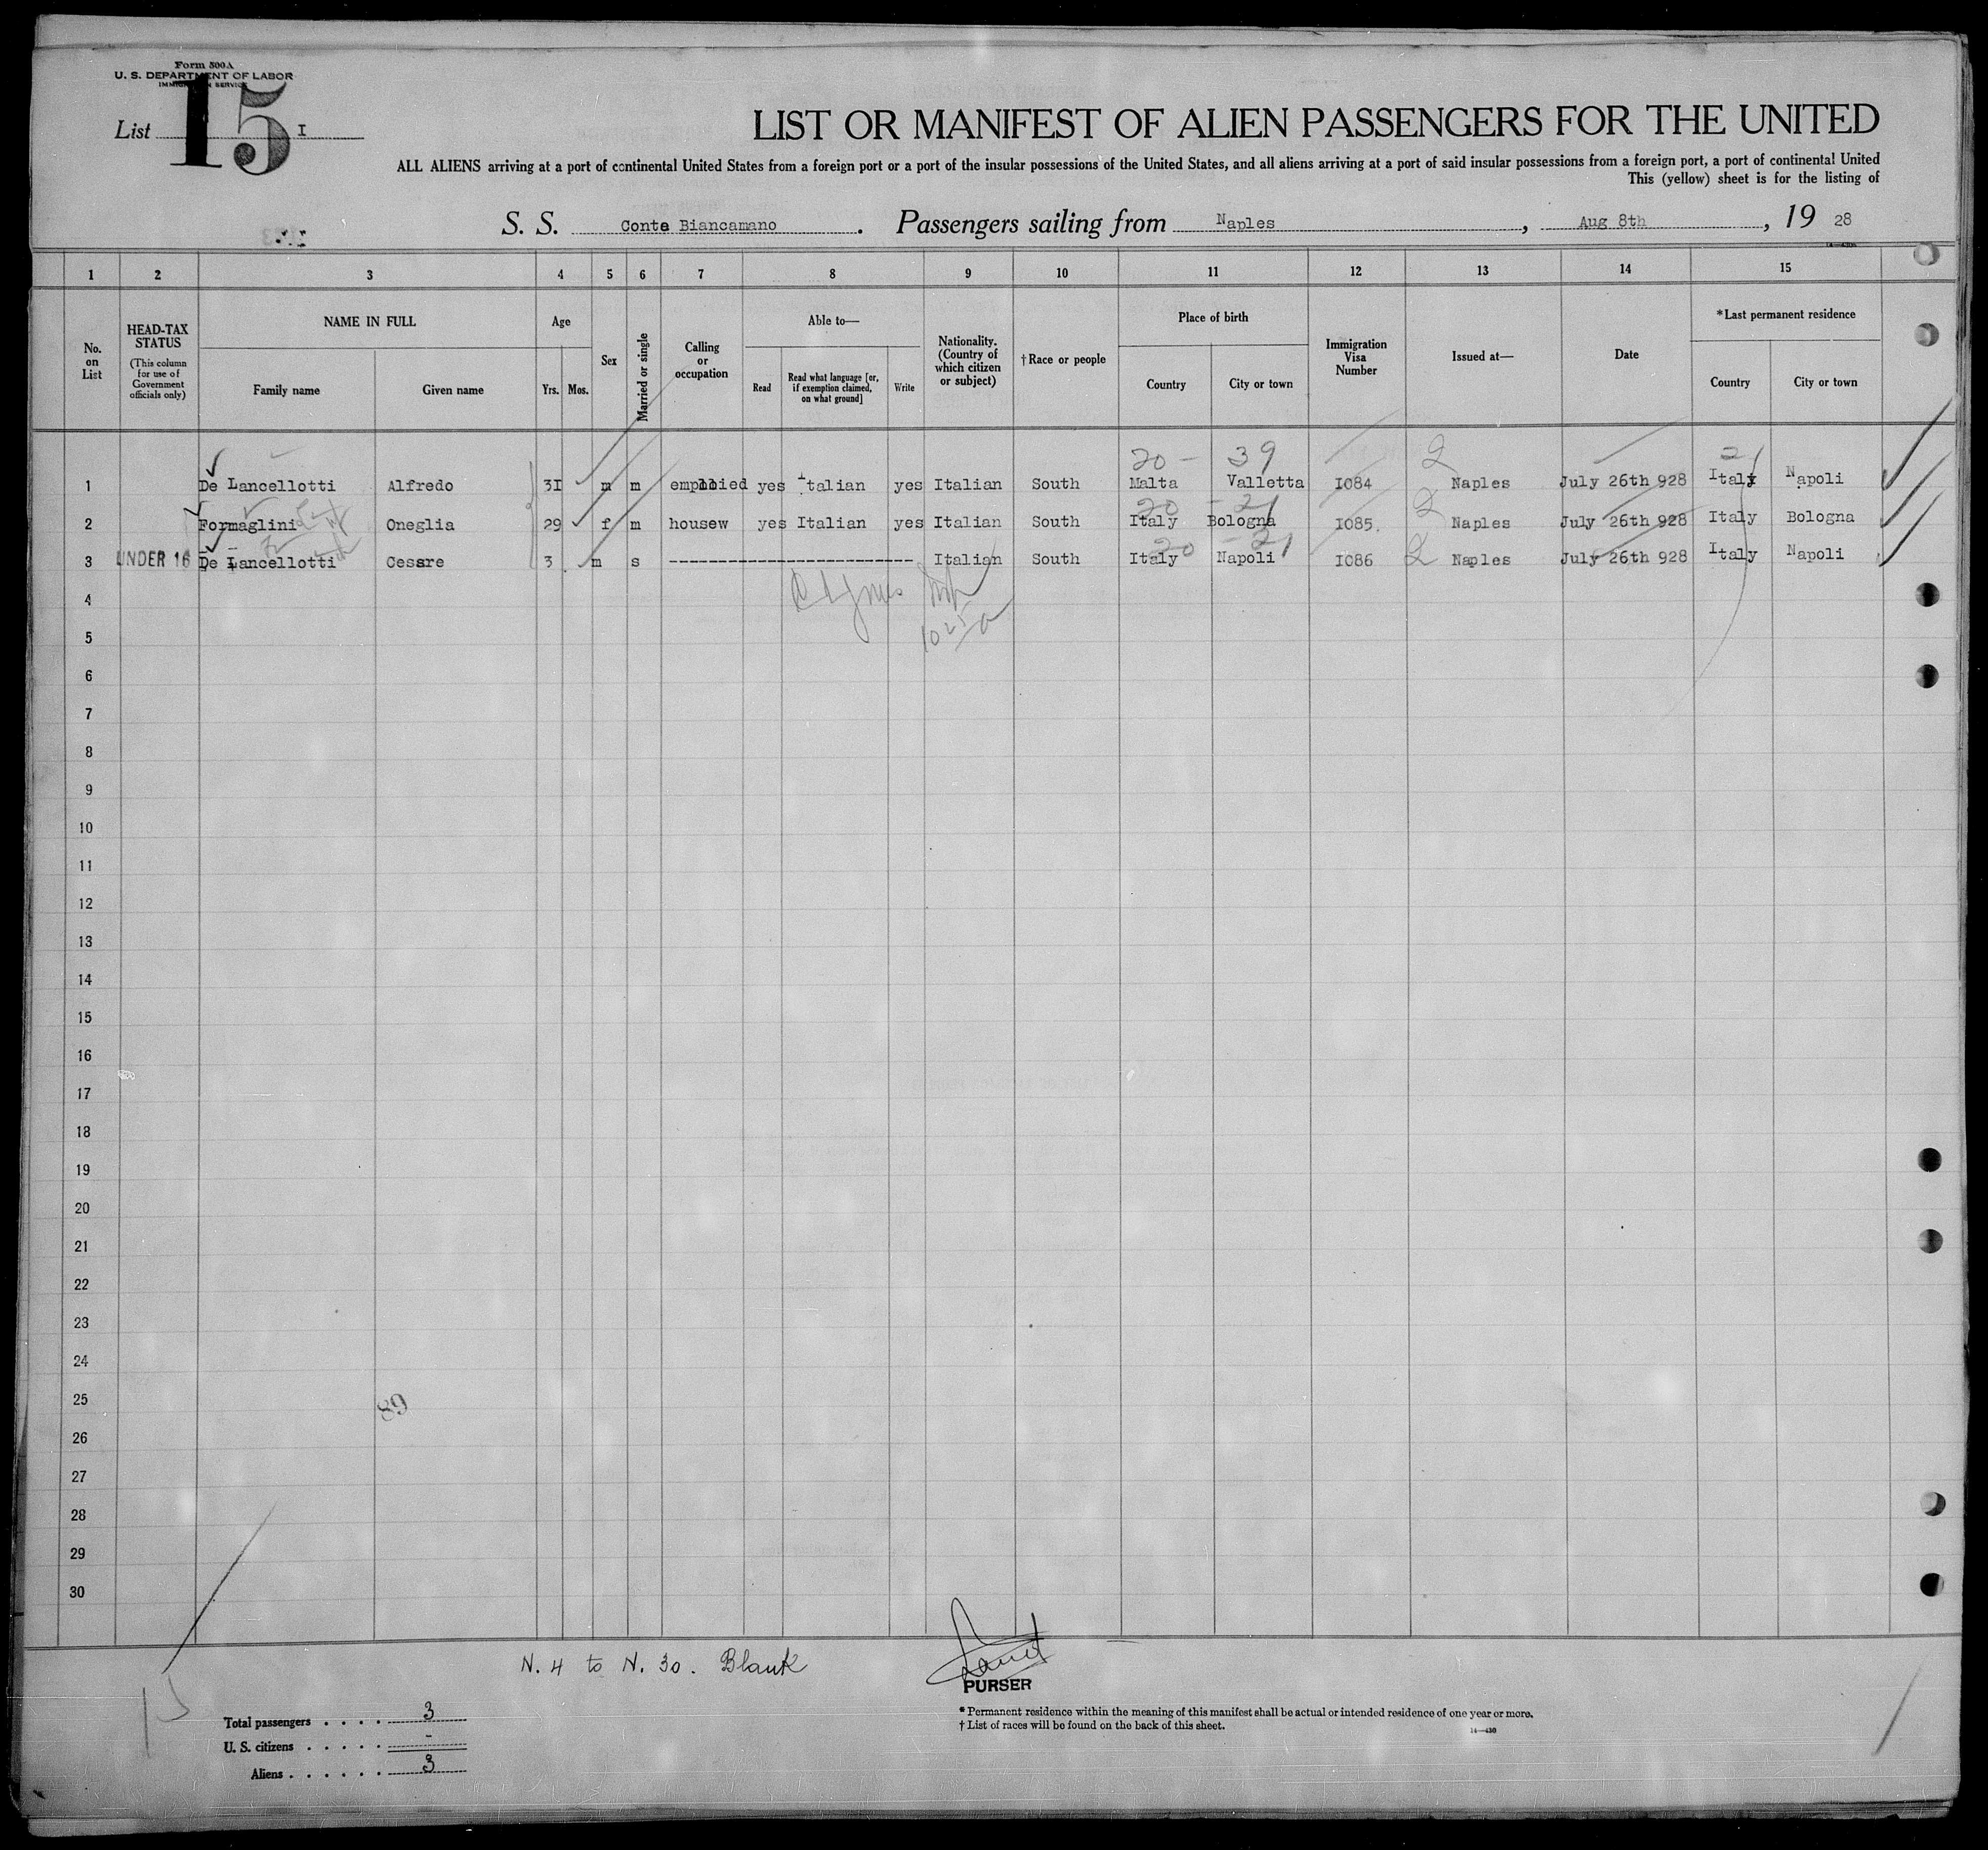 Form 500A
U. S. DEPARTMENT OF LABOR
IMMIGRATION SERVICE
List 15 I
LIST OR MANIFEST OF ALIEN PASSENGERS FOR THE UNITED
ALL ALIENS arriving at a port of continental United States from a foreign port or a port of the insular possessions of the United States, and all aliens arriving at a port of said insular possessions from a foreign port, a port of continental United
This (yellow) sheet is for the listing of
S. S. Conte Biancamano. Passengers sailing from Naples, Aug 8th, 19 28
1 2 3 4 5 6 7 8 9 10 11 12 13 14 15
No. on List
HEAD-TAX STATUS (This column for use of Government officials only)
NAME IN FULL
Family name Given name
Age
Yrs. Mos.
Sex
Married or single
Calling or occupation
Able to—
Read Read what language [or, if exemption claimed, on what ground] Write
Nationality. (Country of which citizen or subject)
†Race or people
Place of birth
Country City or town
Immigration Visa Number
Issued at—
Date
*Last permanent residence
Country City or town
20 - 39 2 21
1 De Lancellotti Alfredo 31 m m emploied yes Italian yes Italian South Malta Valletta 1084 Naples July 26th 928 Italy Napoli
20 - 21 2
2 Formaglini Oneglia 29 f m housew yes Italian yes Italian South Italy Bologna 1085. Naples July 26th 928 Italy Bologna
20 - 21 2
3 UNDER 16 De Lancellotti Cesare 3 m s ---------------------- Italian South Italy Napoli 1086 Naples July 26th 928 Italy Napoli
4
5
6
7
8
9
10
11
12
13
14
15
16
17
18
19
20
21
22
23
24
25
89
26
27
28
29
30
N. 4 to N. 30. Blank
PURSER
Total passengers . . . . 3
U. S. citizens . . . . . -
Aliens . . . . . . 3
* Permanent residence within the meaning of this manifest shall be actual or intended residence of one year or more.
† List of races will be found on the back of this sheet.
14—430